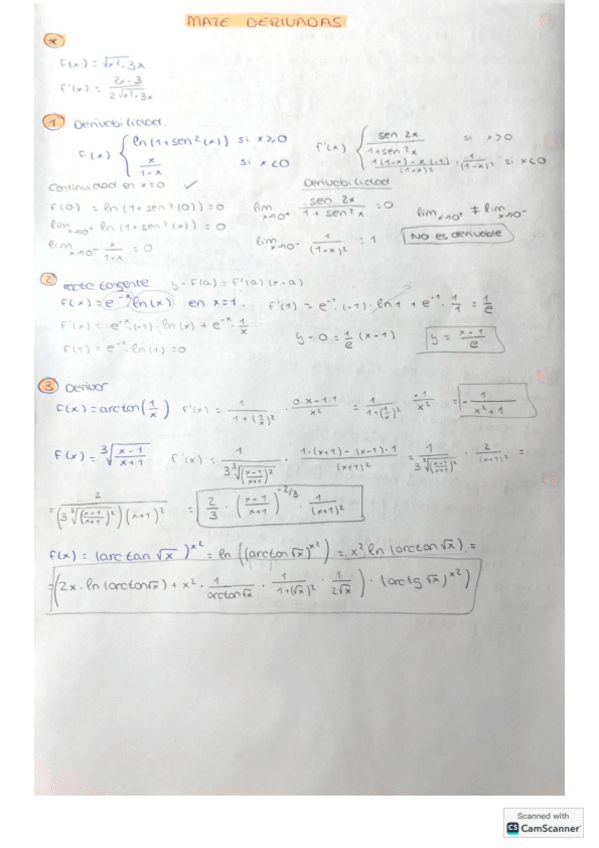 MATE DERIVADAS
*
f(x) = √x²-3x
f'(x) = 2x-3 / 2√x²-3x
1 Derivabilidad
f(x) { ln(1+sen²(x)) si x≥0
x / 1-x si x<0
f'(x) { sen 2x / 1+sen²x si x>0
1(1-x)-x(-1) / (1-x)² = 1 / (1-x)² si x<0
Continuidad en x=0 ✓
f(0) = ln(1+sen²(0)) = 0
lim x→0+ ln(1+sen²(x)) = 0
lim x→0- x / 1-x = 0
Derivabilidad
lim x→0+ sen 2x / 1+sen²x = 0
lim x→0- 1 / (1-x)² = 1
lim x→0+ ≠ lim x→0-
NO es derivable
2 recta tangente y-f(a) = f'(a)(x-a)
f(x) = e^-x · ln(x) en x=1. f'(1) = e^-1 · (-1) · ln 1 + e^-1 · 1/1 = 1/e
f'(x) = e^-x · (-1) · ln(x) + e^-x · 1/x
y-0 = 1/e (x-1)
y = x-1 / e
f(1) = e^-1 · ln(1) = 0
3 Derivar
f(x) = arctan(1/x) f'(x) = 1 / 1+(1/x)² · 0·x-1·1 / x² = 1 / 1+(1/x)² · -1 / x² = - 1 / x²+1
f(x) = ³√x-1 / x+1 f'(x) = 1 / 3 ³√(x-1 / x+1)² · 1·(x+1)-(x-1)·1 / (x+1)² = 1 / 3 ³√(x-1 / x+1)² · 2 / (x+1)² =
= 2 / (3 ³√(x-1 / x+1)²)(x+1)² = 2/3 · (x-1 / x+1)^-2/3 · 1 / (x+1)²
f(x) = (arctan √x)^x² = ln((arctan √x)^x²) = x² ln(arctan √x) =
= (2x · ln(arctan √x) + x² · 1 / arctan √x · 1 / 1+(√x)² · 1 / 2√x) · (arctg √x)^x²)
Scanned with
CS CamScanner